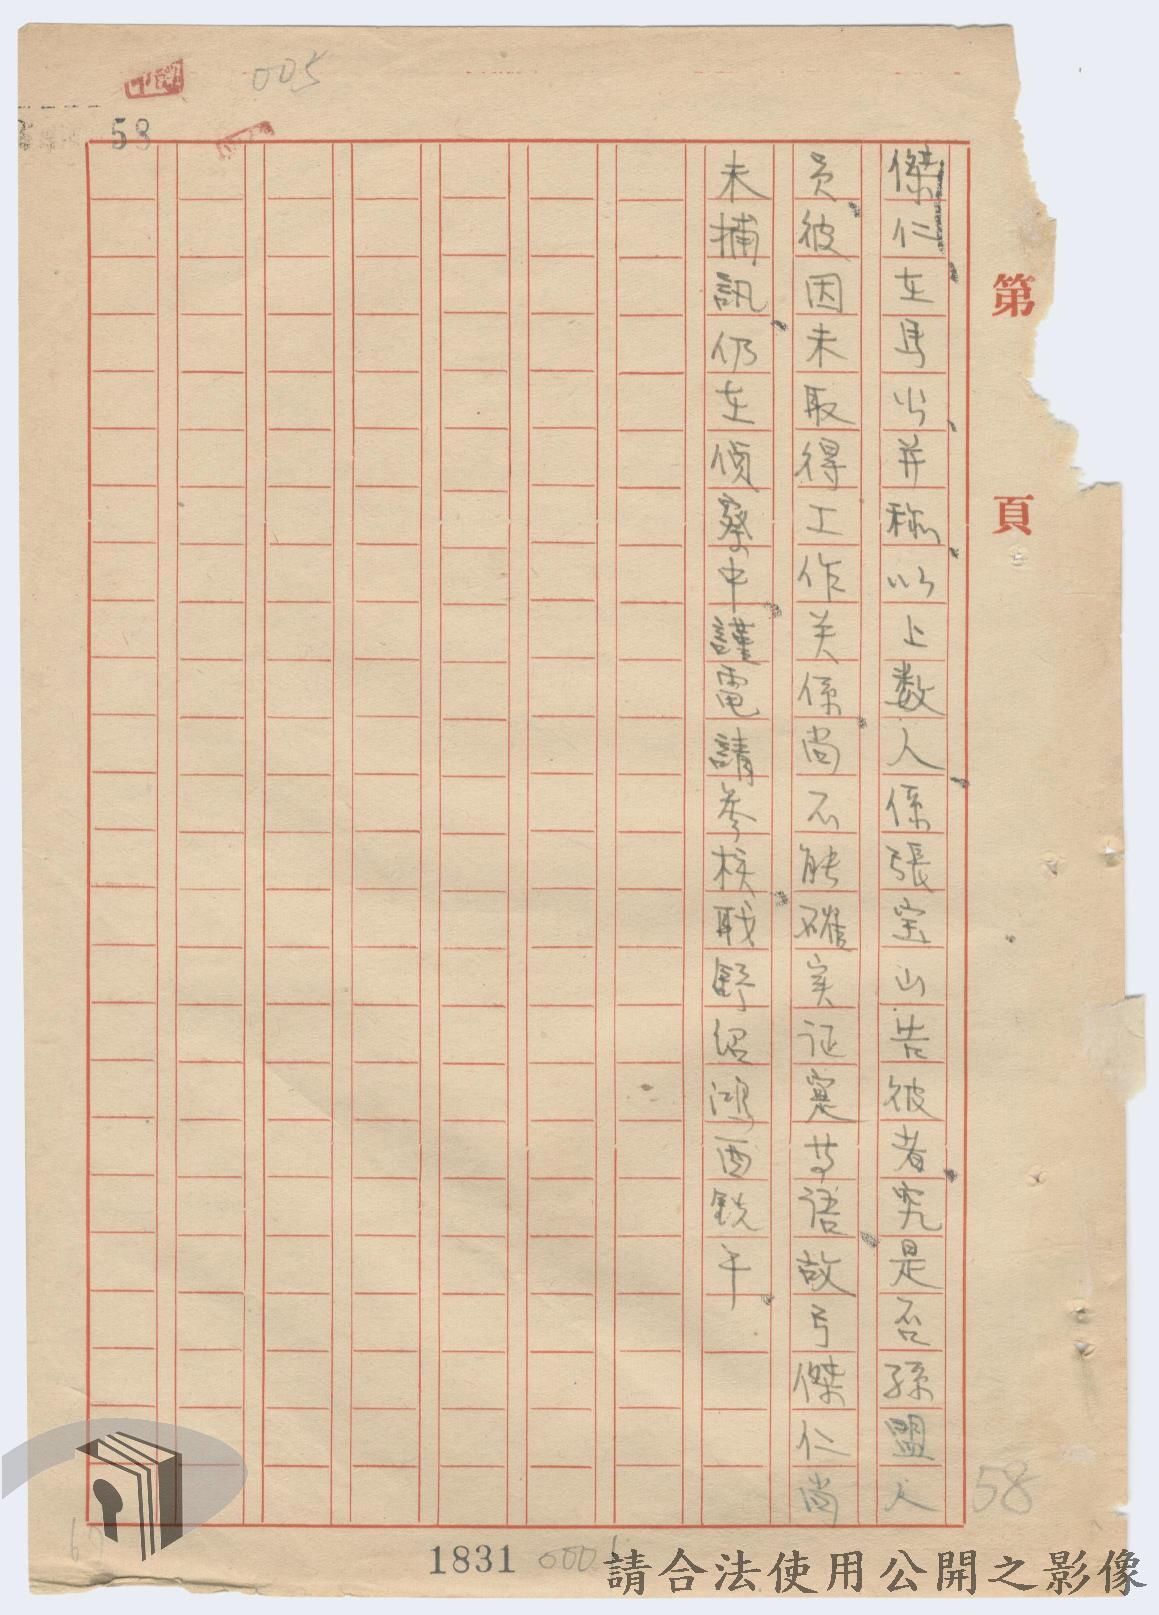 005
58
第 頁
傑仁在馬公、并称以上数人、係張宝山告彼者、究是否孫盟人
員、彼因未取得工作关係、尚不能確实证寔等语、故弓傑仁尚
未捕訊、仍在偵察中、謹電請参核、職舒绍鴻酉銑午、
58
1831
請合法使用公開之影像